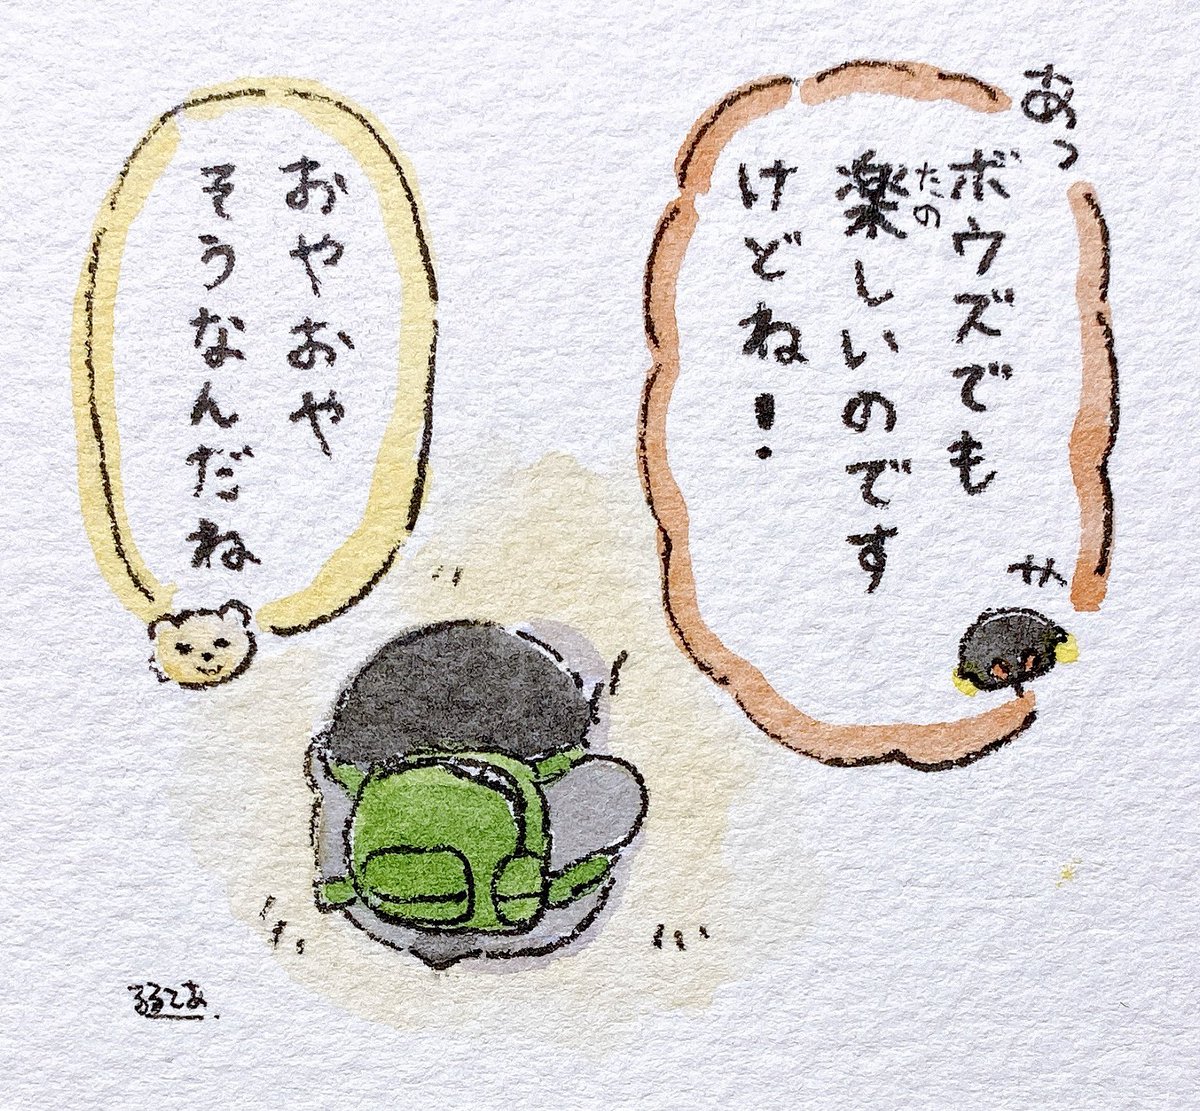 あっ
ボウズでも
楽しいのです
たの
けどね！
おやおや
そうなんだね